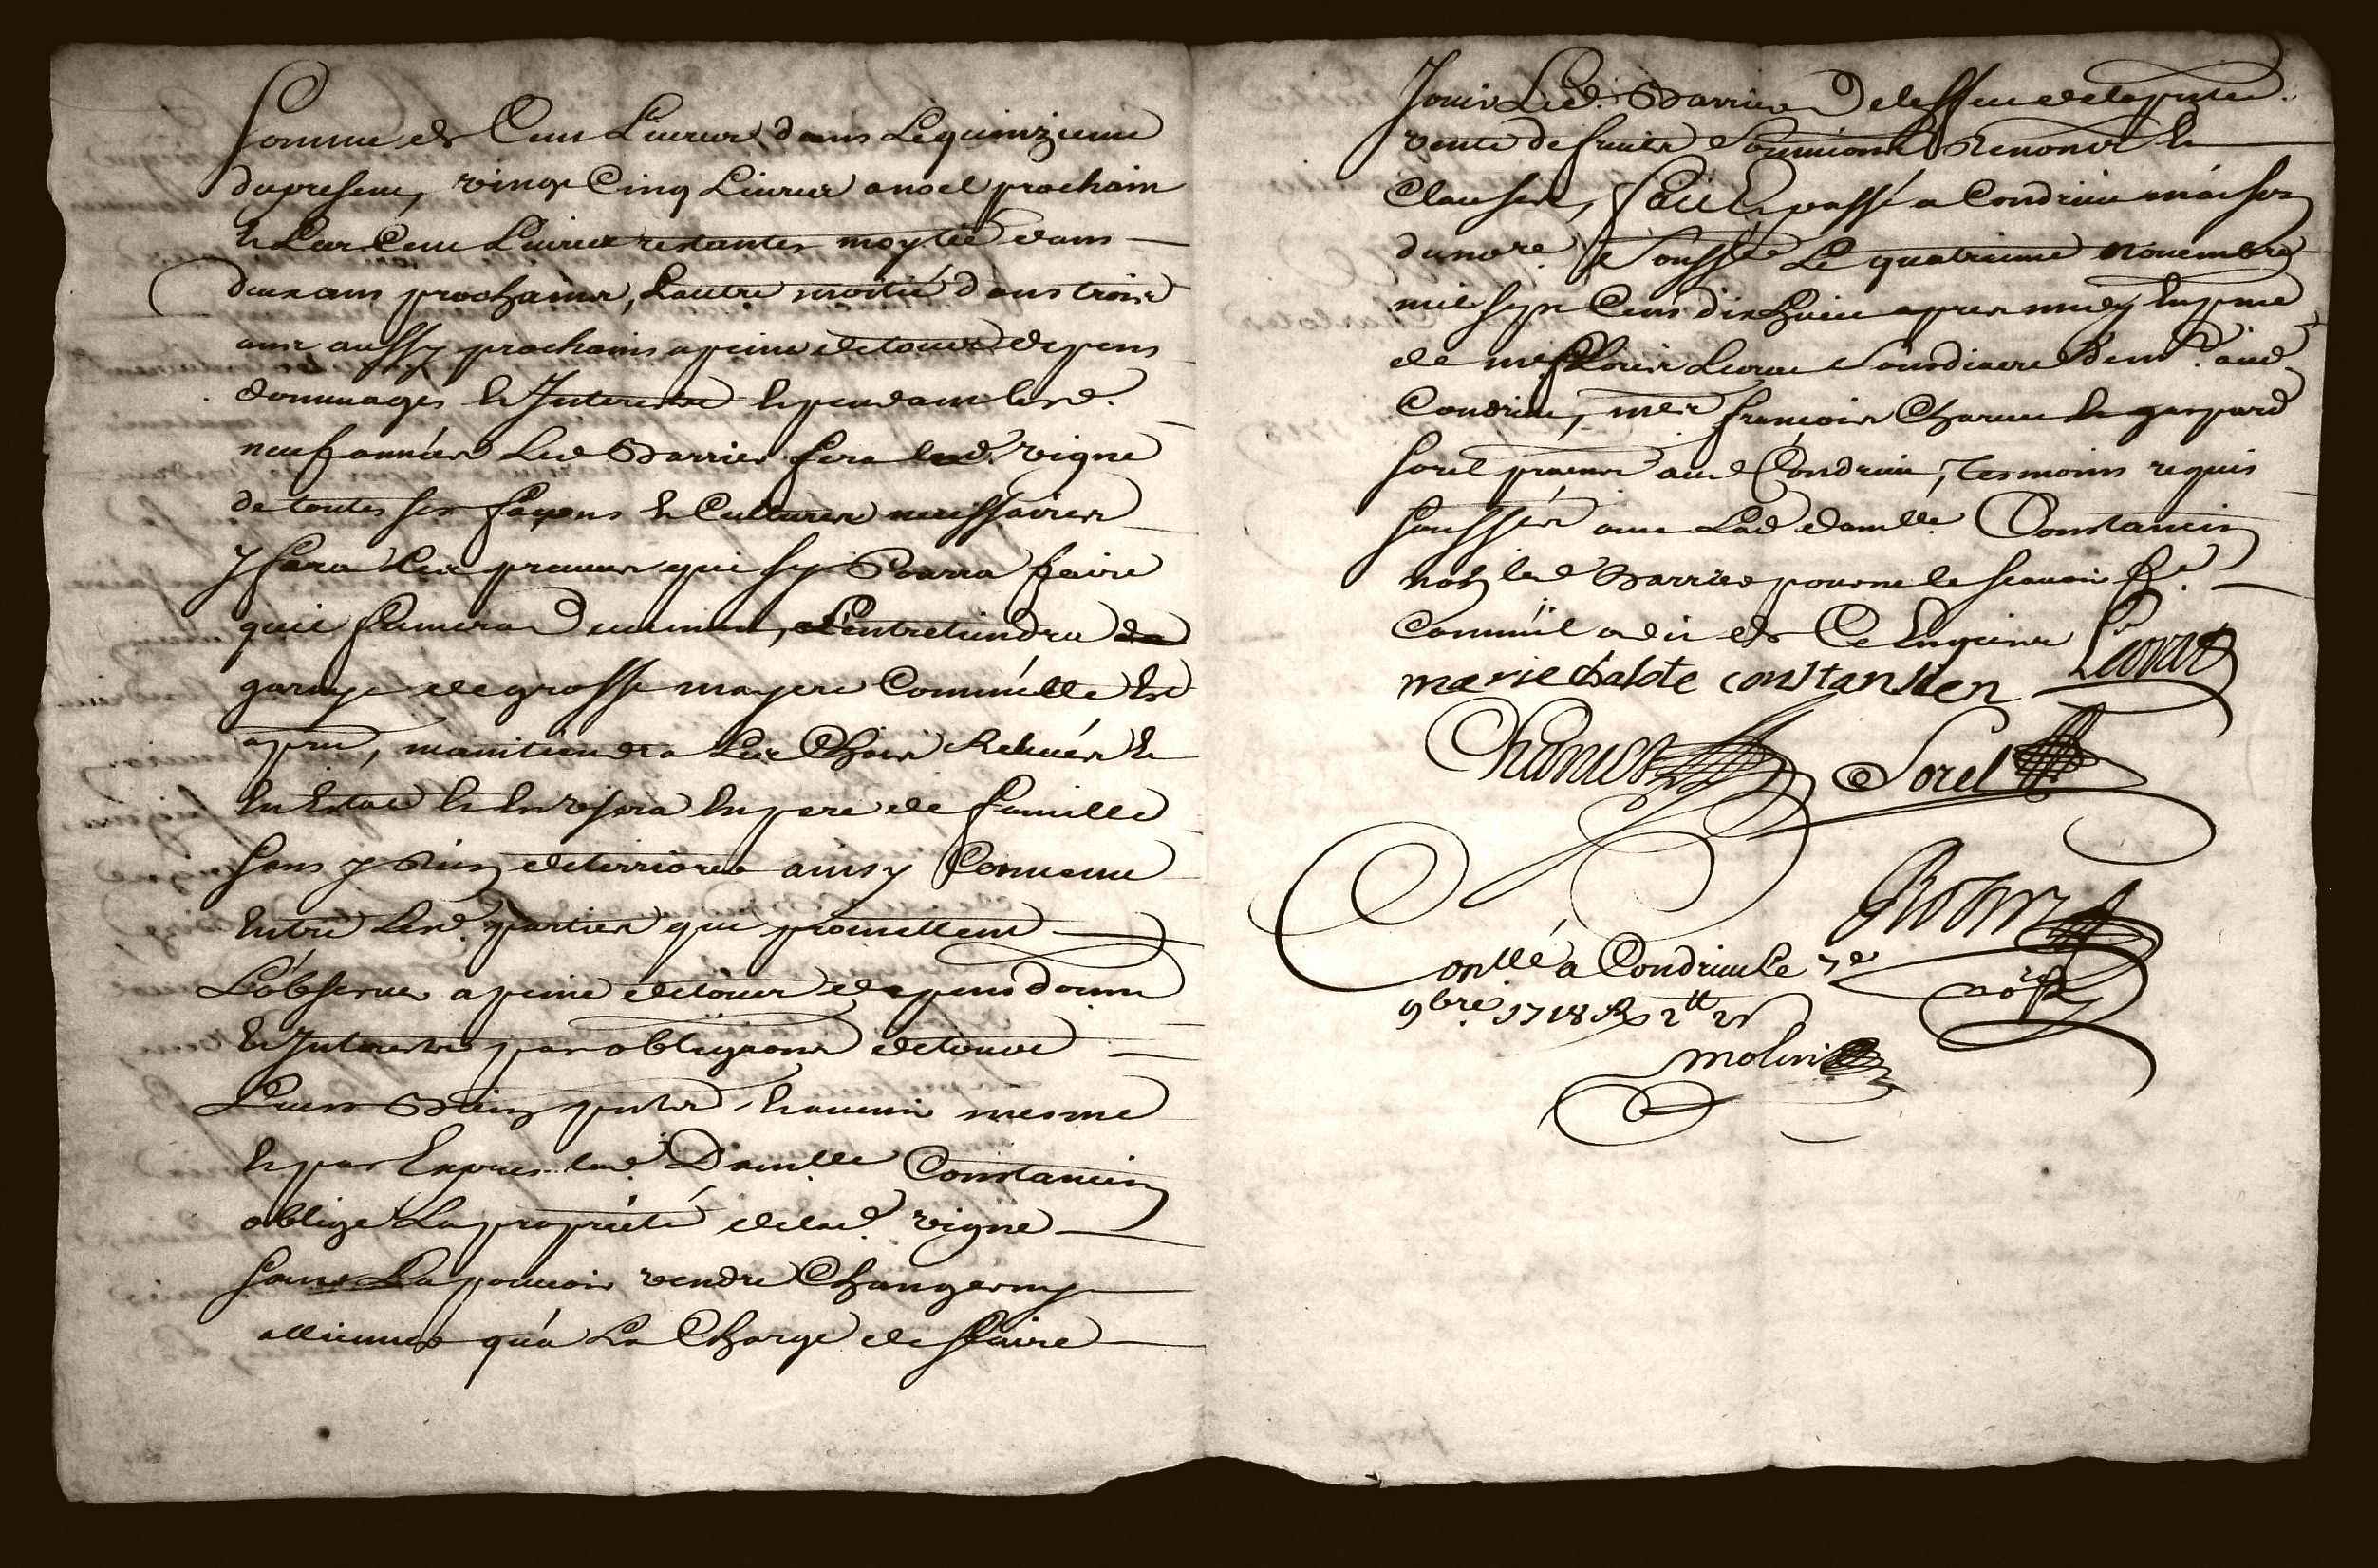 Somme de Cent Livres dans Le quinzieme
du present, vingt Cinq Livres a noel prochain
et Les Cent Livres restantes moytié dans
deux ans prochains, L'autre moitié dans trois
ans aussy prochains a peine de tous depens
dommages et Interests et pendant lesd.
neuf années Led Barrier fera lad. vigne
de toutes ses façons et Cultures necessaires
y fera Les preuues qui sy Pourra faire
quil fumera, L'entretiendra
de grosse mayere Comme elle est
apnt, maintiendra Les Chois Releués et
en Estat et en vsera en pere de famille
sans y Rien deterriorer ainsy Conuenu
entre Lesd. parties qui promettent
L'obseruer a peine de tous depens domm
et Interests par obligaons de tous
Leurs Biens pnts et auenir mesme
et par Expres lad. Damlle Constancin
oblige La proprieté de lad. vigne
sans La pouuoir vendre Changer ny
alliener qu'a La Charge de faire
Jouir Led. Barrier de leffect de la pnte
vente de fruits Soumions Renons et
Clauses, fait et passé a Condrieu maison
du nore. Soussé Le quatrieme nouembre
mil sept Cens dix huict apres midy En pnce
de me Louis Sousdiacre demt. aud
Condrieu, mes. françois et gaspard
sorel aud Condrieu, Tesmoins requis
soussés auec Lad damlle. Constancin
non led Barrier pour ne le scauoir fe.
Comme il a dit de Ce Enquis
marie chalote constansien
Sorel
Contllé a Condrieu Le 7e
9bre. 1718 R 2tt 2s
molin